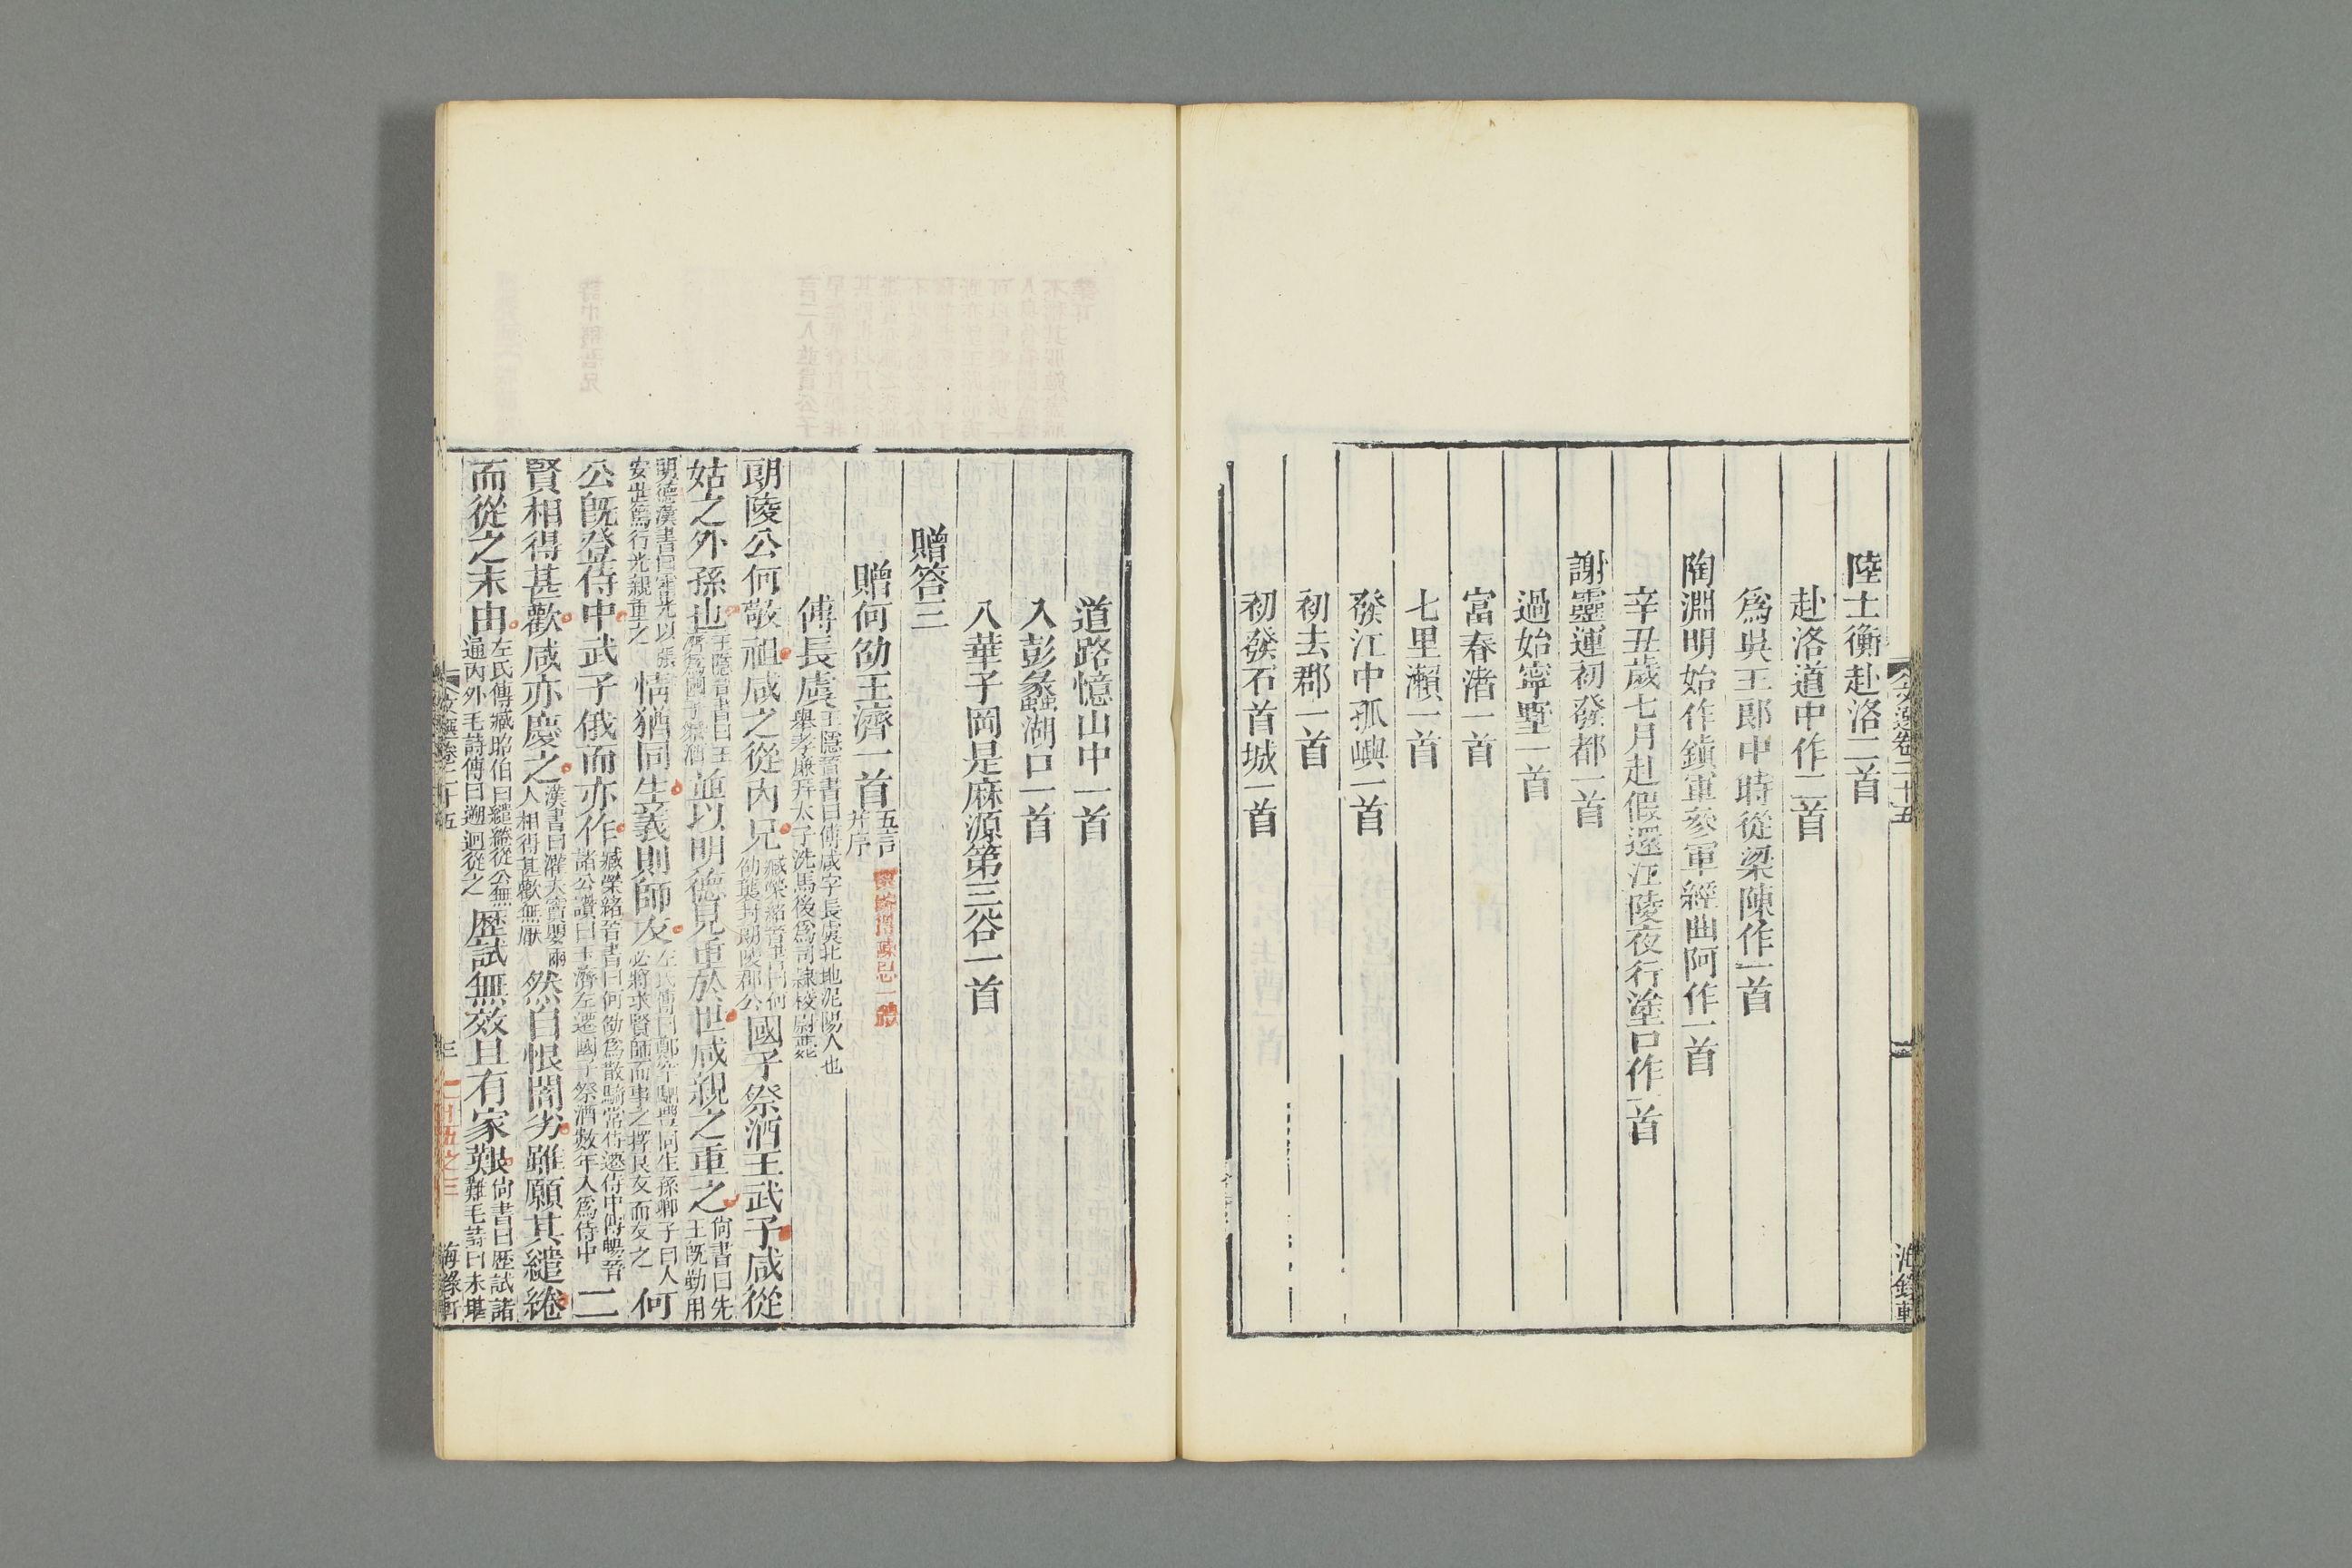 文選卷二十五
海錄軒
陸士衡赴洛二首
赴洛道中作二首
爲吳王郎中時從梁陳作一首
陶淵明始作鎮軍參軍經曲阿作一首
辛丑歲七月赴假還江陵夜行塗口作一首
謝靈運初發都一首
過始寧墅一首
富春渚一首
七里瀨一首
發江中孤嶼一首
初去郡一首
初發石首城一首
道路憶山中一首
入彭蠡湖口一首
入華子岡是麻源第三谷一首
贈答三
贈何劭王濟一首五言并序
傅長虞王隱晉書曰傅咸字長虞北地泥陽人也舉孝廉拜太子洗馬後爲司隸校尉薨
朗陵公何敬祖咸之從內兄臧榮緒晉書曰何劭襲封朗陵郡公國子祭酒王武子咸從
姑之外孫也王隱晉書曰王濟爲國子祭酒並以明德見重於世咸親之重之尙書曰先王旣勤用
明德漢書曰霍光以張安世篤行光親重之情猶同生義則師友左氏傳曰鄭罕駟豐同生孫卿子曰人必將求賢師而事之擇良友而友之何
公旣登侍中武子俄而亦作臧榮緒晉書曰何劭爲散騎常侍遷侍中傅暢晉諸公讚曰王濟左遷國子祭酒數年入爲侍中二
賢相得甚歡咸亦慶之漢書曰灌夫竇嬰兩人相得甚歡無厭然自恨闇劣雖願其繾綣
而從之末由左氏傳臧昭伯曰繾綣從公無通內外毛詩傳曰遡迴從之歷試無效且有家艱尙書曰歷試諸難毛詩曰未堪
文選卷二十五
三
二十五之三
海錄軒